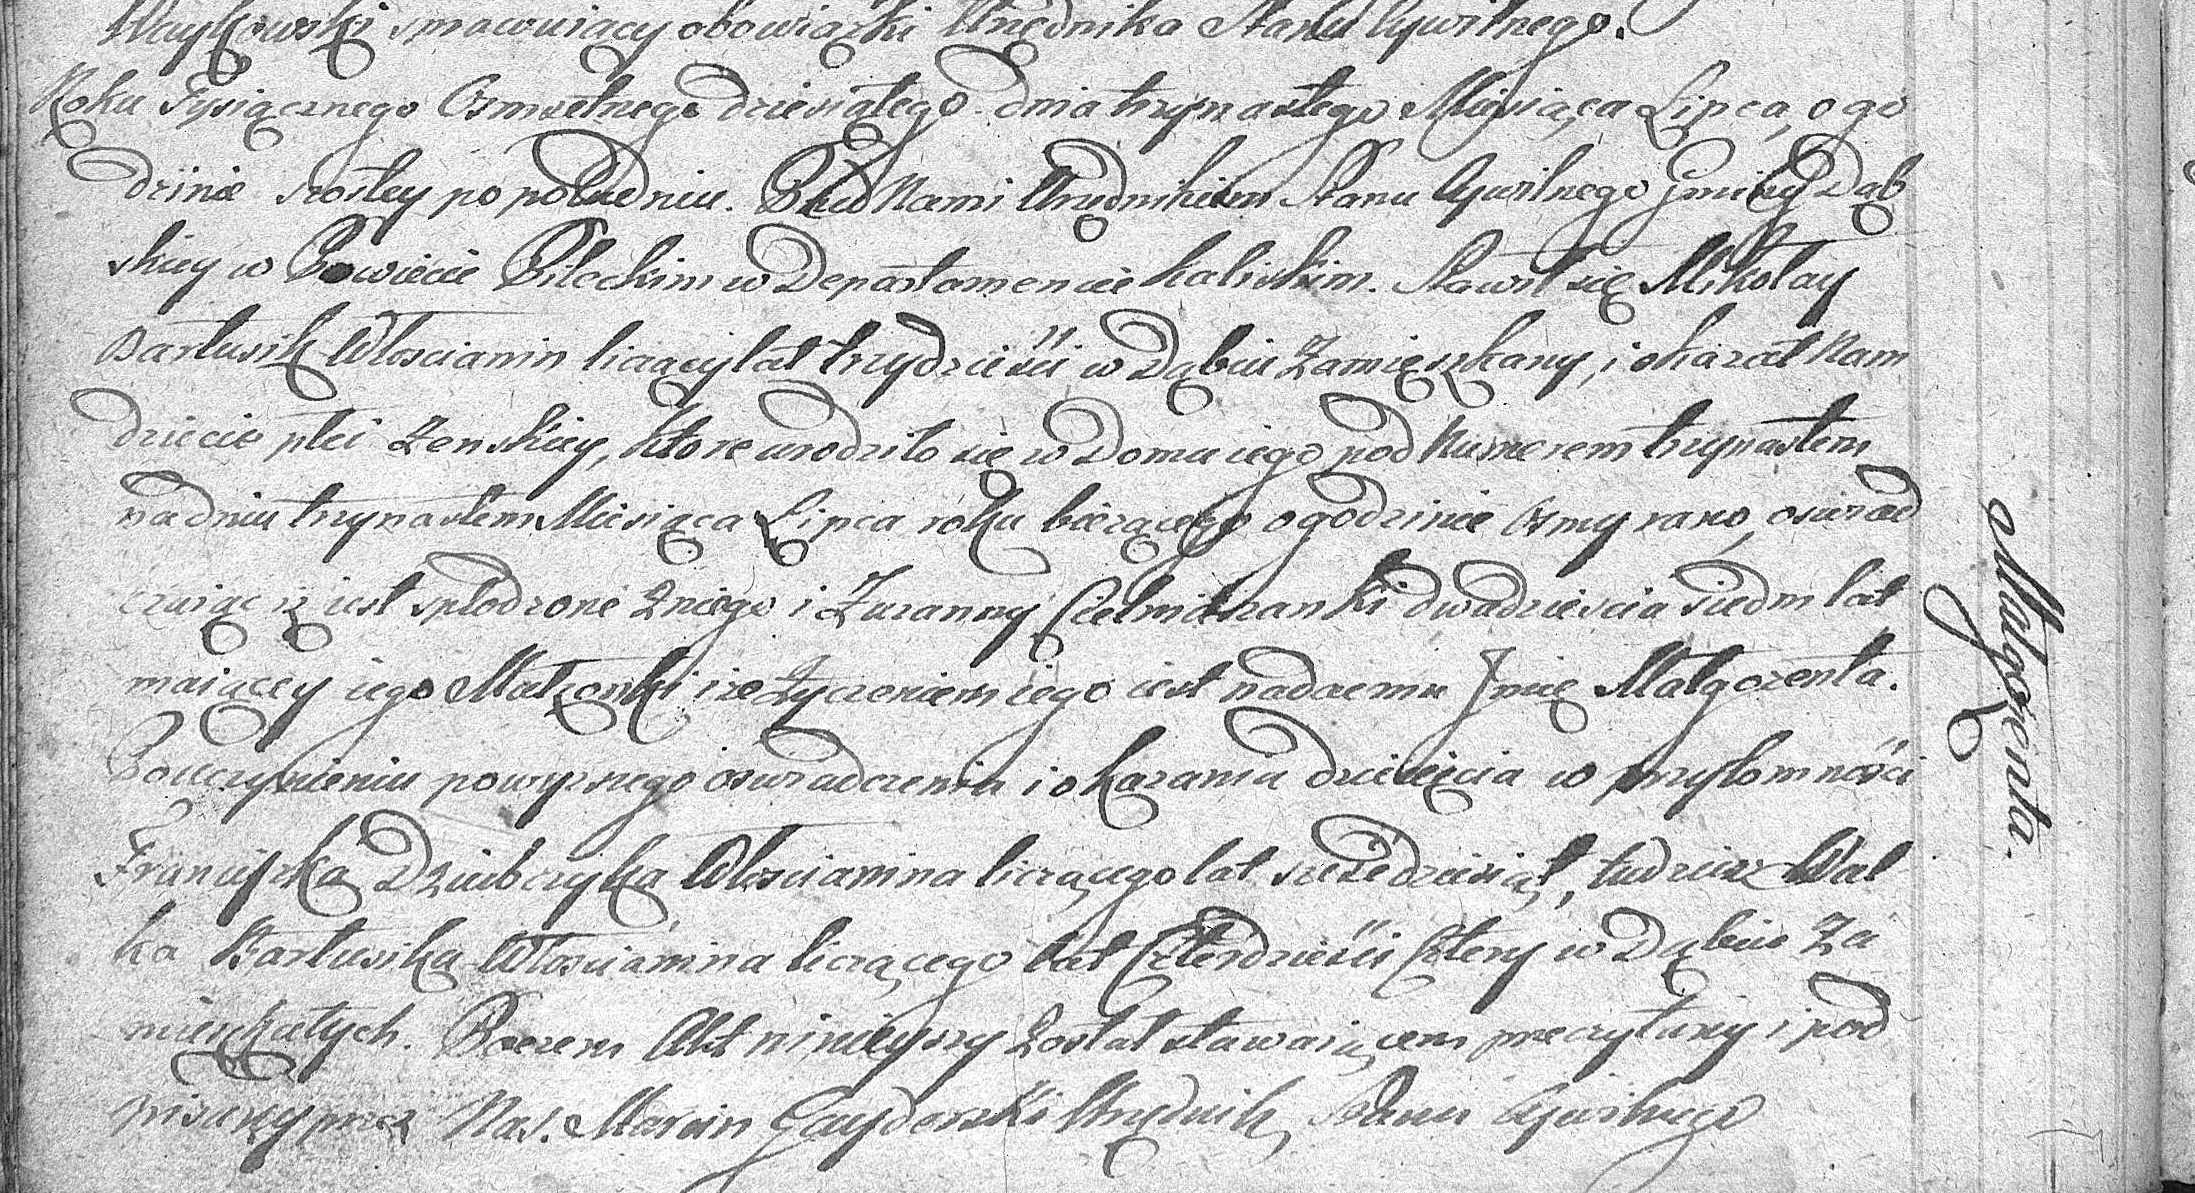 sprawuiący obowiązki Urzędnika Stanu Cywilnego.
Roku Tysiącznego Osmsetnego dziesiątego dnia trzynastego Miesiąca Lipca, o go
dzinie szostey po południu. Przed Nami Urzędnikiem Stanu Cywilnego Gminy Dąb
skiey w Powiecie Pileckim w Departamencie kaliskim. Stawił się Mikołay
Bartusik Włoscianin liczący lat trzydzieści w Dąbiu Zamięszkany, i okazał Nam
dziecie płci Zenskiey, ktore urodziło się w Domu iego pod Numerem trzynastem
na dniu trzynastem Miesiąca Lipca roku bieżącego o godzinie osmy rano, oswiad
czaiąc iz iest spłodzone Zniego i Zuzanny dwadziescia siedm lat
maiącey iego Małzonki i ze życzeniem iego iest nadaemu Jmię Małgorzenta.
Po uczynieniu powyzsnego oswiadczenia i okazania dziecięcia w przytomności
Franciszka Dziubczyka Włoscianina liczącego lat sześcdziesiąt, tudziesz Wal
ka Bartusika Włoscianina liczącego lat Czterdzieści Cztery w Dąbiu Za
mieszkałych. Poczem Akt ninieyszy Został stawaiącem przeczytany i pod
pisany przez Nas. Marcin Gaydzerski Urzędnik Stanu Cywilnego
Małgorzenta.